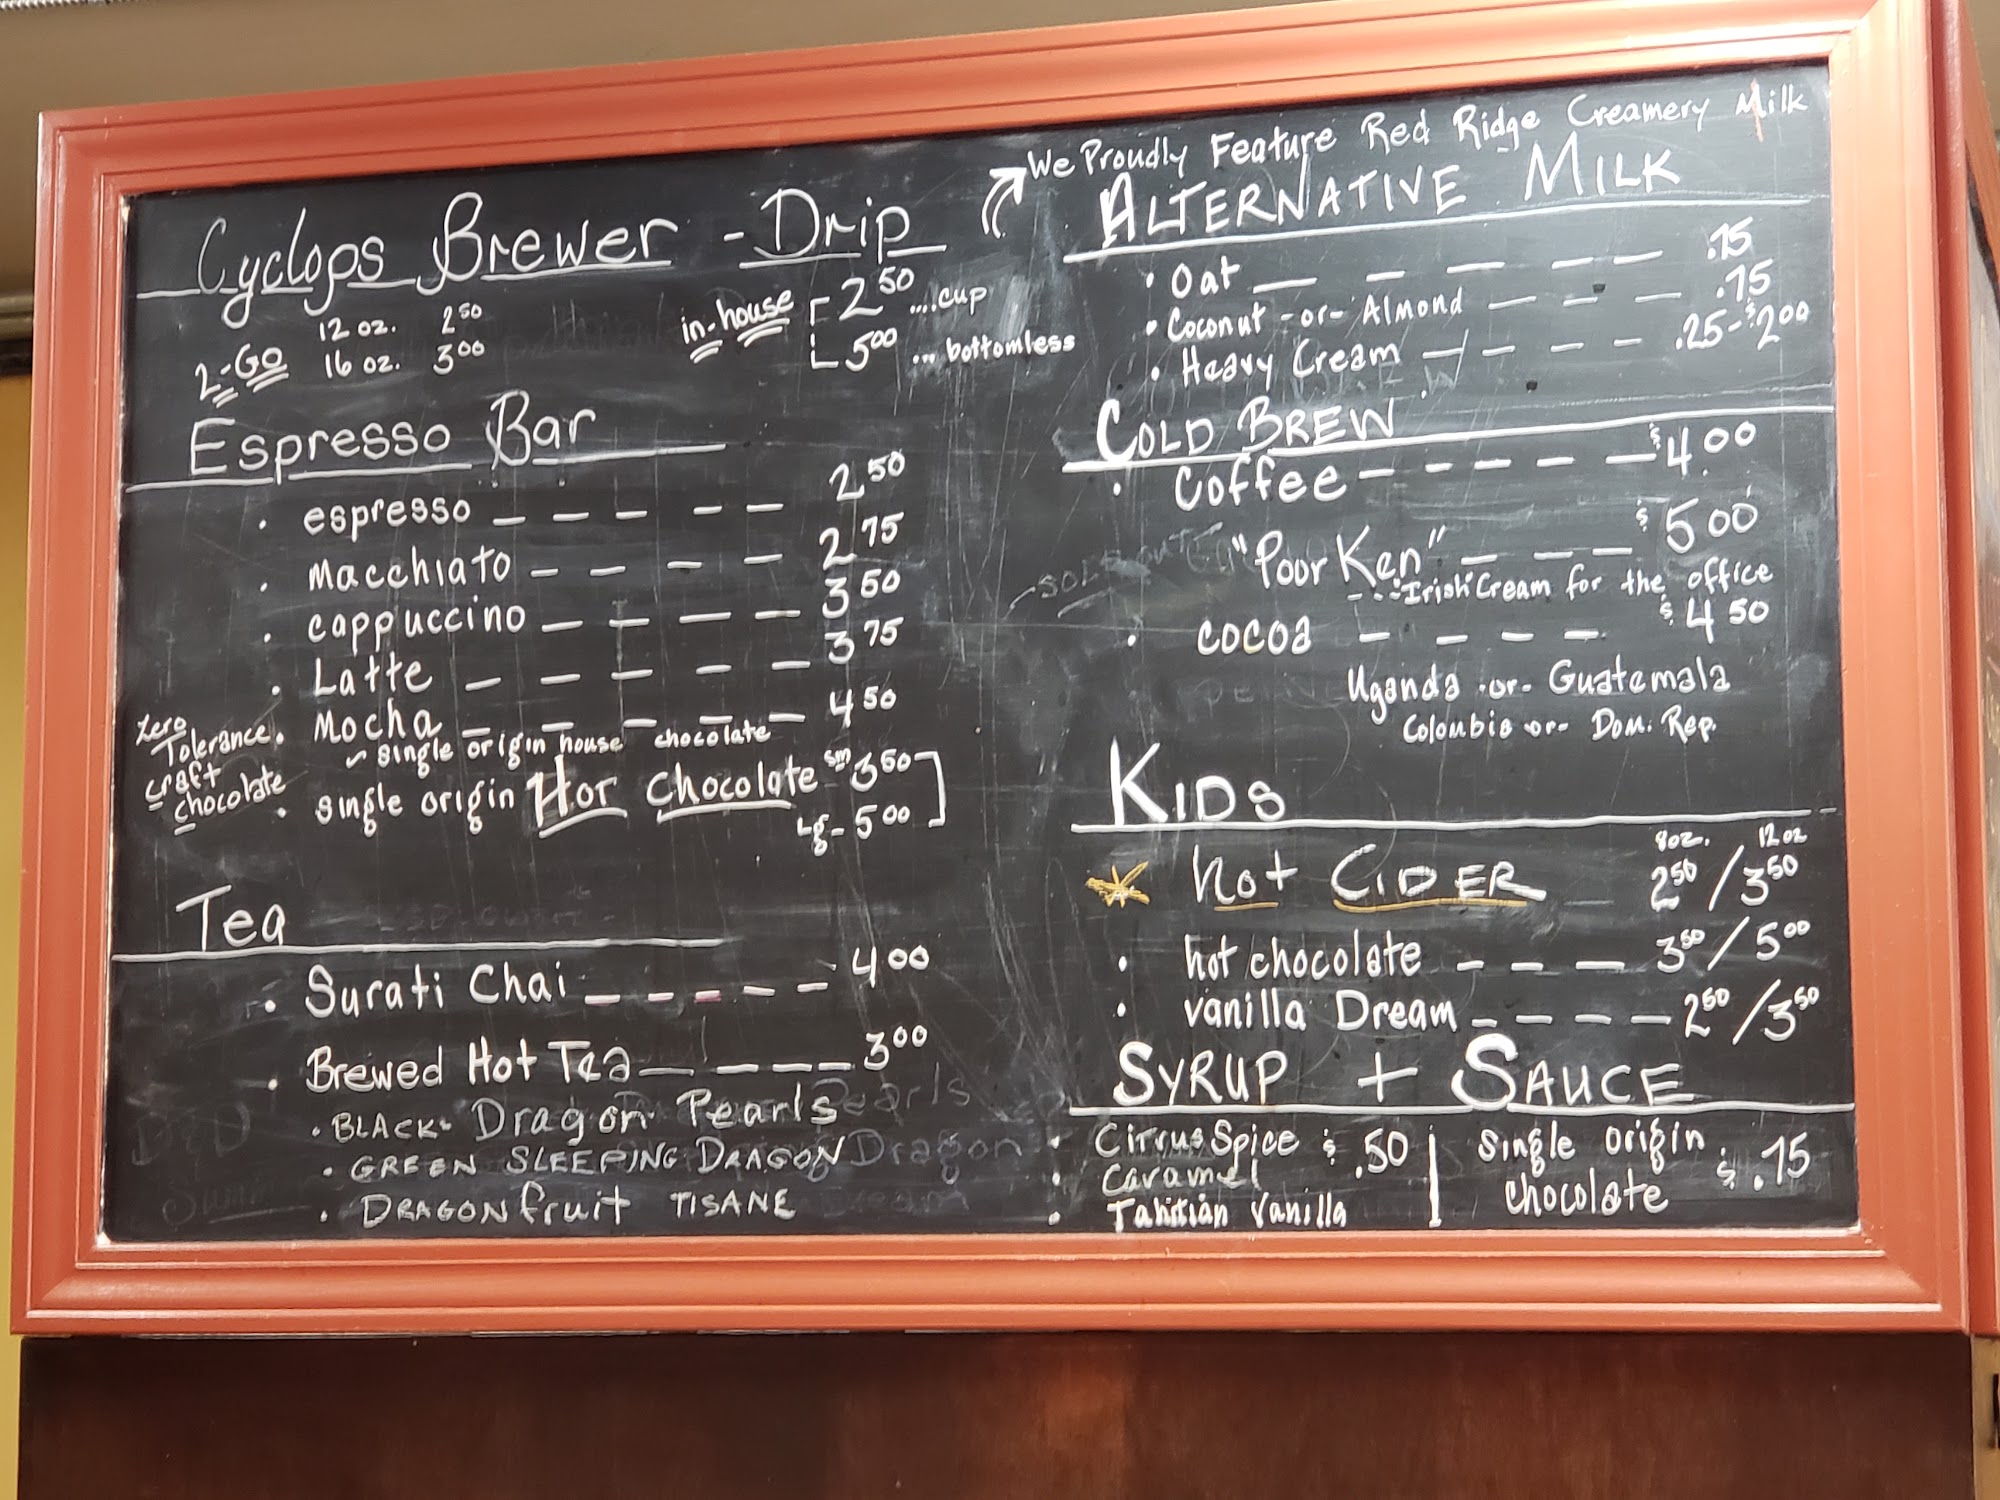 Cyclops Brewer - Drip
2-Go 12 oz. 2 50
16 oz. 3 00
in-house 2 50 ....cup
5 00 ... bottomless
Espresso Bar
· espresso — — — — — 2 50
· Macchiato — — — — 2 75
· cappuccino — — — — 3 50
· Latte — — — — — 3 75
Zero Tolerance craft chocolate
· Mocha — — — — — 4 50
~ single origin house chocolate
· single origin Hot Chocolate sm 3 50
Lg - 5 00
Tea
· Surati Chai — — — — — 4 00
· Brewed Hot Tea — — — — 3 00
· BLACK - Dragon Pearls
· GREEN SLEEPING DRAGON
· DRAGONfruit TISANE
We Proudly Feature Red Ridge Creamery Milk
ALTERNATIVE MILK
· Oat — — — — — .75
· Coconut -or- Almond — — — .75
· Heavy Cream — — — — .25-$2 00
COLD BREW
· Coffee — — — — — $4.00
"Poor Ken" — — — — $5 00
---Irish Cream for the office
· COCOA — — — — $4 50
Uganda -or- Guatemala
Colombia or- Dom. Rep.
KIDS
8oz. 12 oz
hot CIDER 2 50 / 3 50
· hot chocolate — — — 3 50 / 5 00
· vanilla Dream — — — — 2 50 / 3 50
SYRUP + SAUCE
· Citrus Spice $.50
· Caramel
· Tahitian Vanilla
single origin chocolate $.75